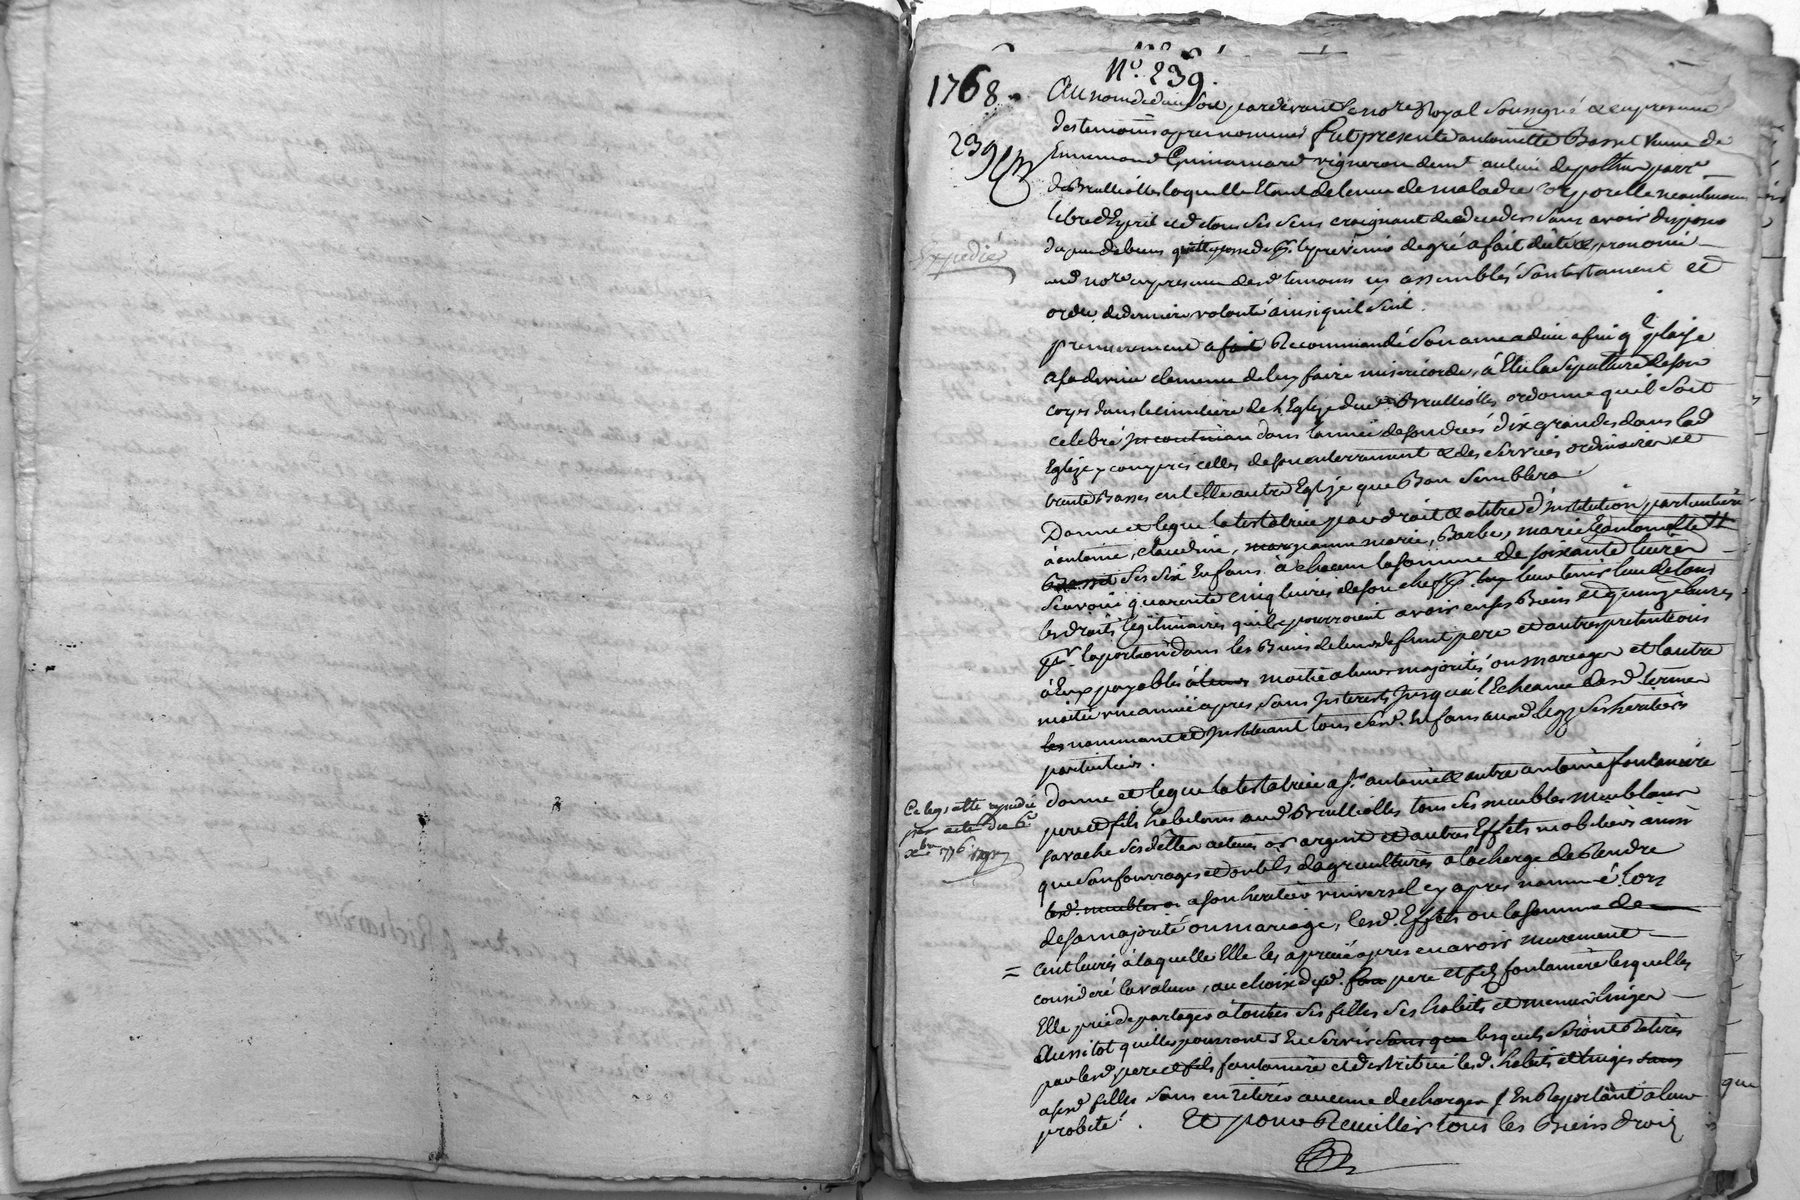 1768.
N.º 239.
239
Expedié
Au nom de dieu soit pardevant le no.re Royal soussigné & en presence
des temoins apres nommés fut presente antoinette Basset veuve de
Ennemond Guinamard vigneron dem.t au lieu de parr.e
de Brulliolles laquelle etant detenue de maladie corporelle neantmoins
libre d'Esprit et de tous ses sens craignant de deceder sans avoir disposé
du peu de biens quelle possede p.r le prevenir de gré a fait dicté & prononcé
aud no.re en presence desd. temoins icy assemblés son testament et
ordre de derniere volonté ainsi quil suit.
premierement a fait Recommandé son ame a dieu afin q.l plaise
a sa divine clemence de luy faire misericorde, a Elu la sepulture de son
corps dans le cimetiere de l'Eglise dud. Brulliolles ordonne quil soit
celebré dans l'année de son decés dix grandes dans lad
Eglise y compris celles de son enterrement & des services ordinaires et
trente Basses en telle autre Eglise que Bon semblera.
Donne et legue la testatrice par droit & a titre d'institution particuliere
à antoine, claudine, jeanne marie, Barbe, marie & antoinette
Basset ses six Enfans à chacun la somme de soixante livres
scavoir quarente cinq livres de son chef p.r leur tenir lieu de tous
les droits legitimaires quils pourroient avoir en ses Biens et quinze livres
p.r la portion dans les Biens de leur defunt pere et autres pretentions
à Eux payables à leurs moitié a leurs majorités ou mariages et l'autre
moitié une année apres sans Interests jusqu'à l'Echeance desd. termes
les nommant et Instituant tous sesd. Enfans aud. legs ses heritiers
particuliers.
donne et legue la testatrice a s.r antoine & autre antoine fontaniere
pere et fils habitans aud. Brulliolles tous ses meubles meublans
sa vache ses dettes actives or argent et autres Effets mobiliers ainsi
que son fourrages et outils d'agricultures a la charge de Rendre
lesd. meubles a son heritier universel cy apres nommé lors
de sa majorité ou mariage, lesd. Effets ou la somme de
cent livres à laquelle Elle les a preciés apres en avoir murement
consideré la valeur, au choix desd. pere et fils fontaniere lesquelles
Elle prie de partager à toutes ses filles ses habits et menus linges
aussitot quelles pourront s'En servir sans que lesquels seront Retirés
par lesd. pere et fils fontaniere et distribué lesd. habits et linges sans
a sesd filles sans en retirer aucune decharges s'En Raportant a leur
probité. Et pour Recueillir tous les Biens droits
Ce legs a été repudié
par acte du 6.e
x.bre 1776